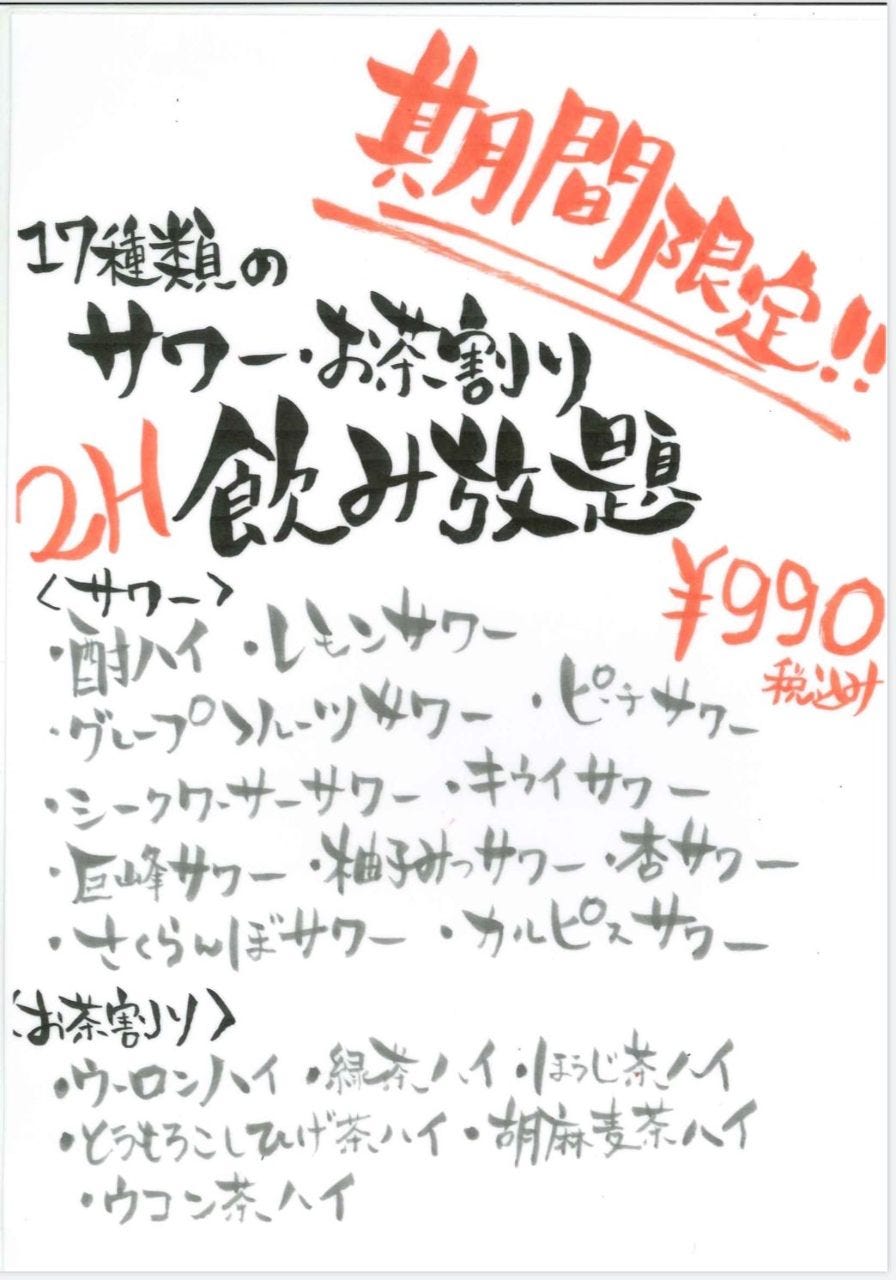 期間限定!!
17種類の
サワー・お茶割り
2H 飲み放題
¥990
税込み
〈サワー〉
・酎ハイ ・レモンサワー
・グレープフルーツサワー ・ピーチサワー
・シークワーサーサワー ・キウイサワー
・巨峰サワー ・柚子みつサワー ・杏サワー
・さくらんぼサワー ・カルピスサワー
〈お茶割り〉
・ウーロンハイ ・緑茶ハイ ・ほうじ茶ハイ
・とうもろこしひげ茶ハイ ・胡麻麦茶ハイ
・ウコン茶ハイ